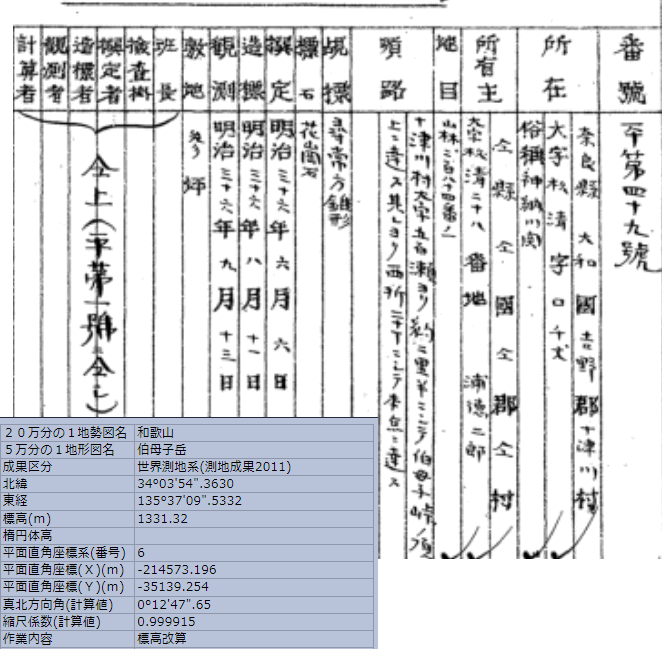 番號
一等第四十九號
所在
奈良縣 大和國吉野郡十津川村
大字杉清字口千丈
俗稱神納川奥
所有主
仝縣仝國仝郡仝村
大字杉清二十八番地 浦德二郎
地目
山林
順路
十津川村大字五百瀬ヨリ約二里半ニシテ伯母子峠ノ頂
上ニ達ス其レヨリ西
覘標
尋常方錐形
標石
花崗石
撰定
明治三十六年六月六日
造標
明治三十六年八月十一日
觀測
明治三十六年九月十三日
敷地
坪
班長
檢査掛
撰定者
造標者
觀測者
計算者
仝上(一等第一號ニ仝シ)
２０万分の１地勢図名 和歌山
５万分の１地形図名 伯母子岳
成果区分 世界測地系(測地成果2011)
北緯 34°03'54".3630
東経 135°37'09".5332
標高(m) 1331.32
楕円体高
平面直角座標系(番号) 6
平面直角座標(Ｘ)(m) -214573.196
平面直角座標(Ｙ)(m) -35139.254
真北方向角(計算値) 0°12'47".65
縮尺係数(計算値) 0.999915
作業内容 標高改算